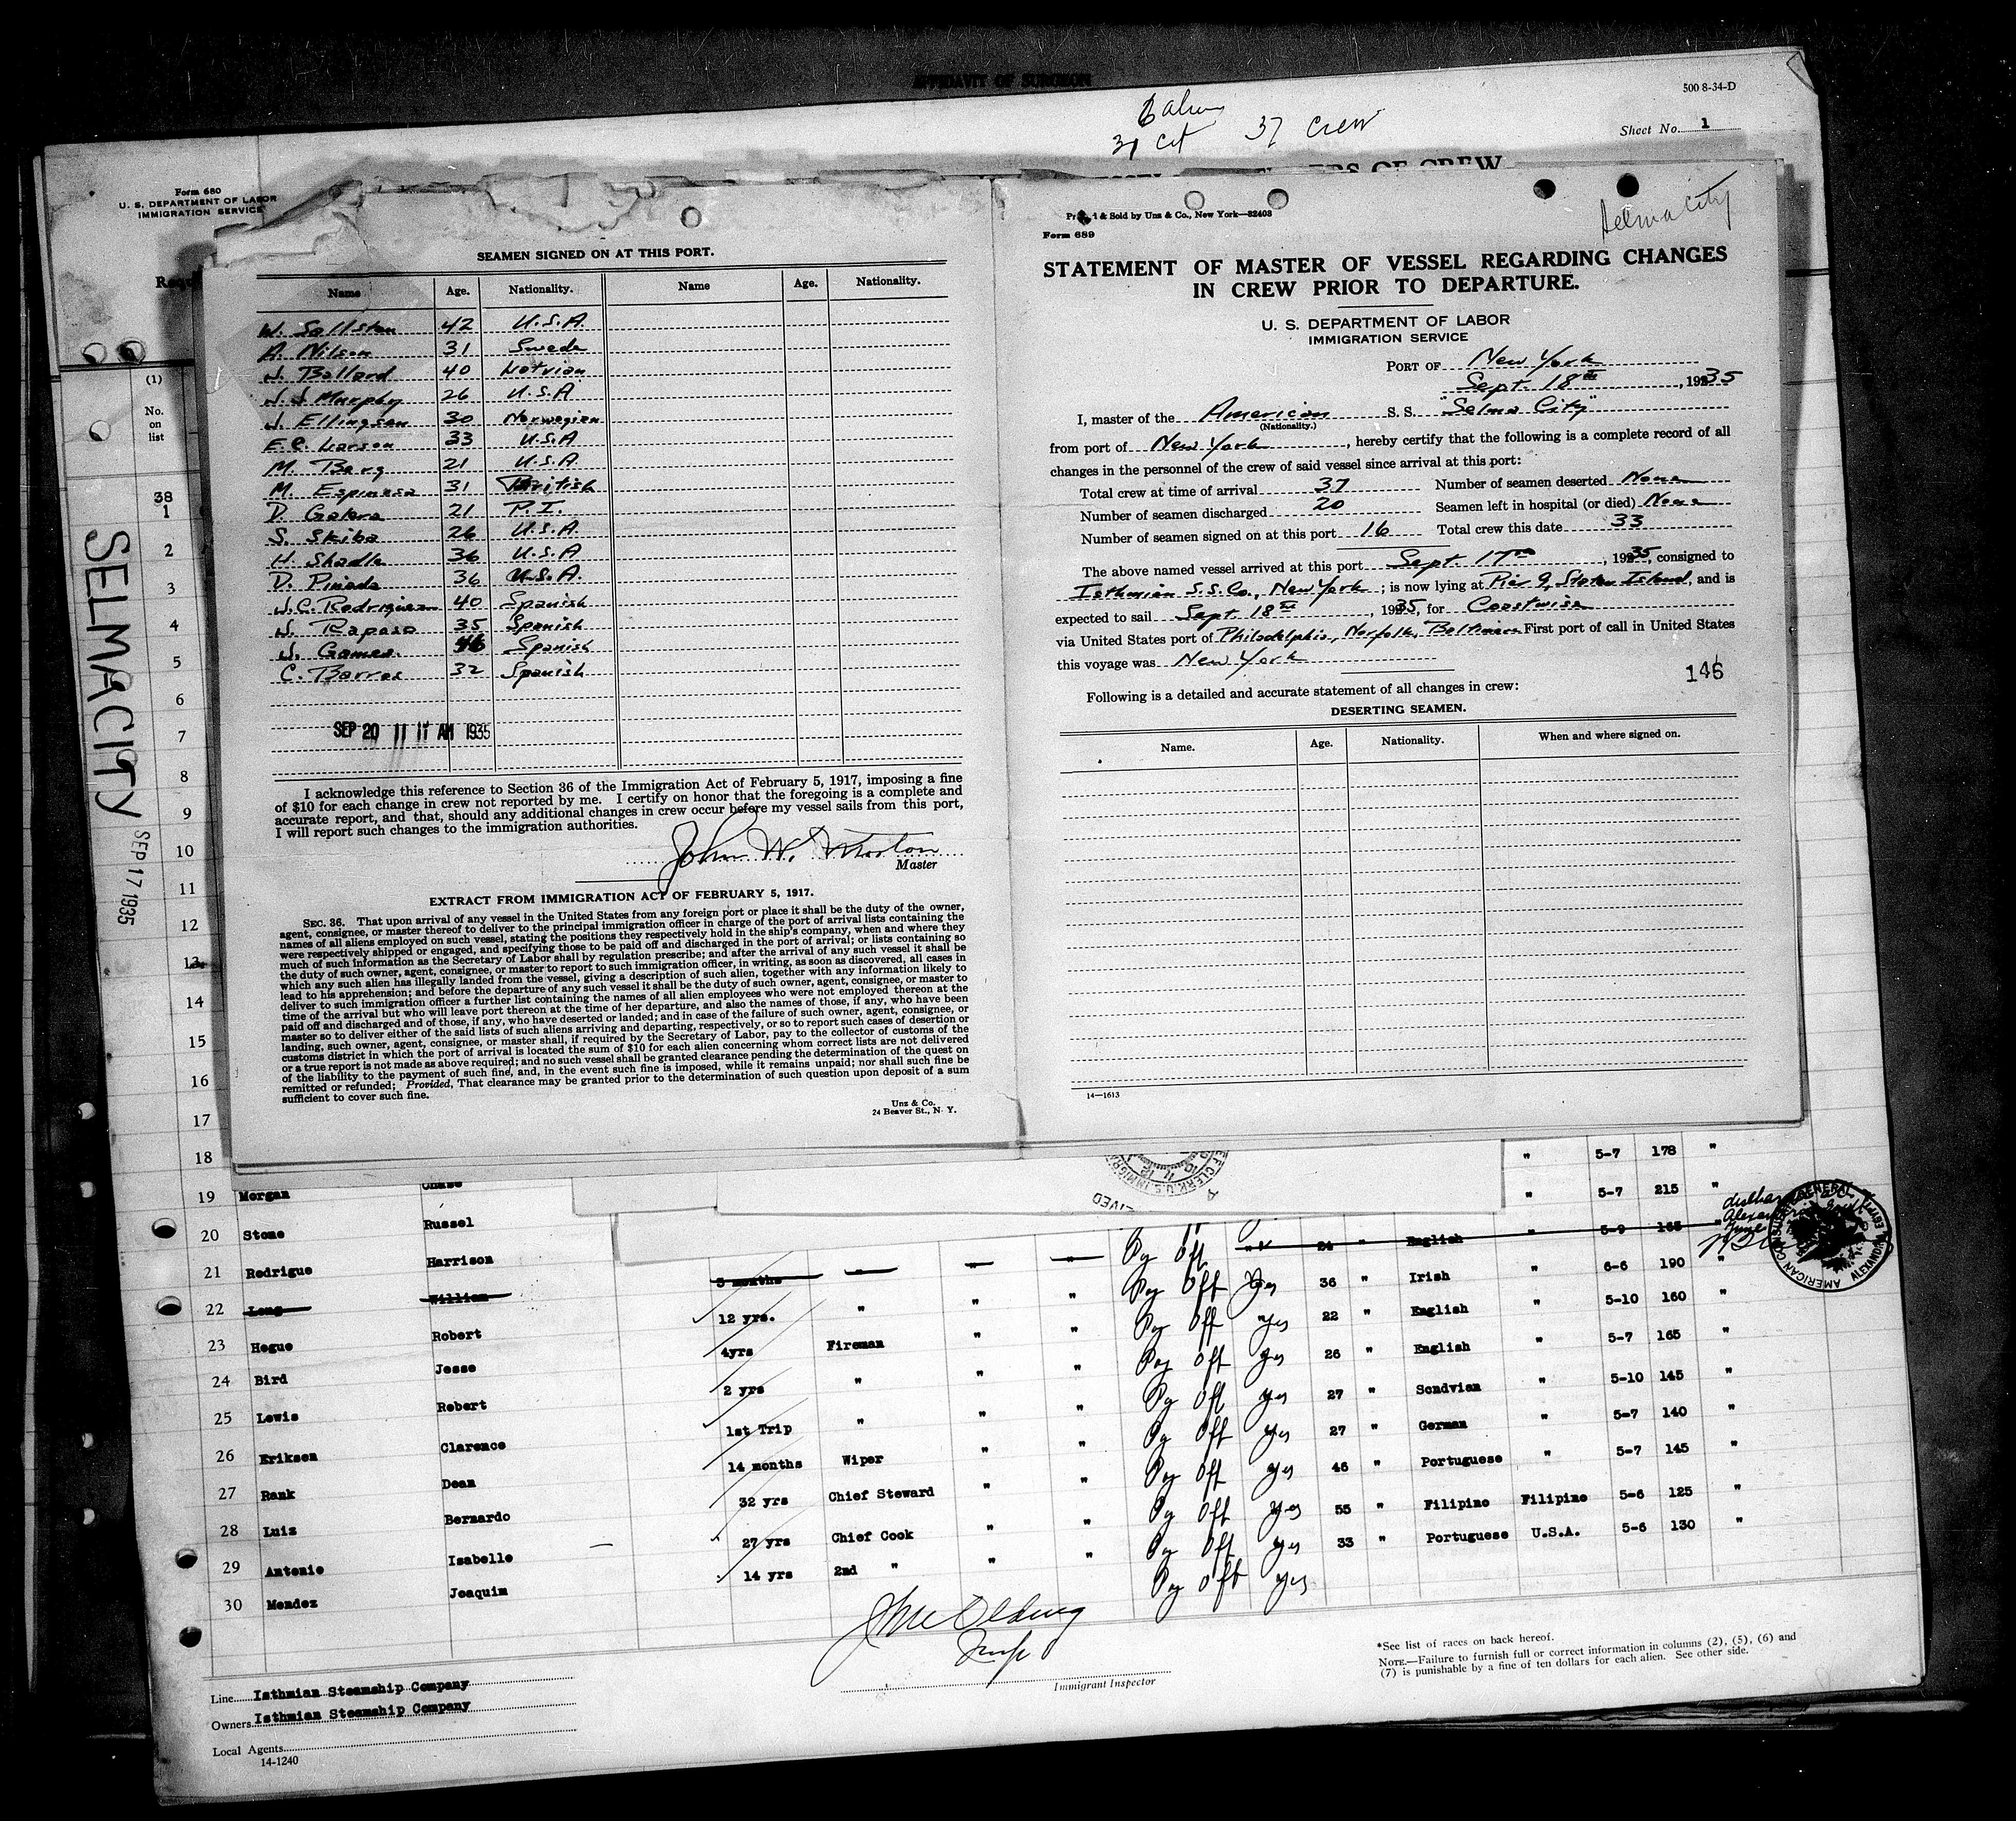 AFFIDAVIT OF SURGEON
500 8-34-D
Sheet No. 1
37 crew
Form 680
U. S. DEPARTMENT OF LABOR
IMMIGRATION SERVICE
SELMACITY
SEP 17 1935
(1)
No.
on
list
38
1
2
3
4
5
6
7
8
9
10
11
12
13
14
15
16
17
18
SEAMEN SIGNED ON AT THIS PORT.
Name Age. Nationality. Name Age. Nationality.
W. Sollsten 42 U.S.A.
A. Nilson 31 Swede
J. Ballard 40 Latvian
J. J. Murphy 26 U.S.A
J. Ellingsen 30 Norwegian
E.C. Larson 33 U.S.A
M. Berg 21 U.S.A.
M. Espinosa 31 British
D. Galera 21 P.I.
S. Skiba 26 U.S.A
H. Shadle 36 U.S.A
D. Pineda 36 U.S.A.
J.C. Rodriguez 40 Spanish
J. Raposo 35 Spanish
J. Gomes 46 Spanish
C. Barros 32 Spanish
SEP 20 11 17 AM 1935
I acknowledge this reference to Section 36 of the Immigration Act of February 5, 1917, imposing a fine
of $10 for each change in crew not reported by me. I certify on honor that the foregoing is a complete and
accurate report, and that, should any additional changes in crew occur before my vessel sails from this port,
I will report such changes to the immigration authorities.
John W. Morton
Master
EXTRACT FROM IMMIGRATION ACT OF FEBRUARY 5, 1917.
SEC. 36. That upon arrival of any vessel in the United States from any foreign port or place it shall be the duty of the owner,
agent, consignee, or master thereof to deliver to the principal immigration officer in charge of the port of arrival lists containing the
names of all aliens employed on such vessel, stating the positions they respectively hold in the ship's company, when and where they
were respectively shipped or engaged, and specifying those to be paid off and discharged in the port of arrival; or lists containing so
much of such information as the Secretary of Labor shall by regulation prescribe; and after the arrival of any such vessel it shall be
the duty of such owner, agent, consignee, or master to report to such immigration officer, in writing, as soon as discovered, all cases in
which any such alien has illegally landed from the vessel, giving a description of such alien, together with any information likely to
lead to his apprehension; and before the departure of any such vessel it shall be the duty of such owner, agent, consignee, or master to
deliver to such immigration officer a further list containing the names of all alien employees who were not employed thereon at the
time of the arrival but who will leave port thereon at the time of her departure, and also the names of those, if any, who have been
paid off and discharged and of those, if any, who have deserted or landed; and in case of the failure of such owner, agent, consignee, or
master so to deliver either of the said lists of such aliens arriving and departing, respectively, or so to report such cases of desertion or
landing, such owner, agent, consignee, or master shall, if required by the Secretary of Labor, pay to the collector of customs of the
customs district in which the port of arrival is located the sum of $10 for each alien concerning whom correct lists are not delivered
or a true report is not made as above required; and no such vessel shall be granted clearance pending the determination of the quest on
of the liability to the payment of such fine, and, in the event such fine is imposed, while it remains unpaid; nor shall such fine be
remitted or refunded; Provided, That clearance may be granted prior to the determination of such question upon deposit of a sum
sufficient to cover such fine.
Unz & Co.
24 Beaver St., N. Y.
& Sold by Unz & Co., New York—82403
Form 689
Selma City
STATEMENT OF MASTER OF VESSEL REGARDING CHANGES
IN CREW PRIOR TO DEPARTURE.
U. S. DEPARTMENT OF LABOR
IMMIGRATION SERVICE
PORT OF New York
Sept. 18th, 1935
I, master of the American S. S. "Selma City"
(Nationality.)
from port of New York, hereby certify that the following is a complete record of all
changes in the personnel of the crew of said vessel since arrival at this port:
Total crew at time of arrival 37 Number of seamen deserted None
Number of seamen discharged 20 Seamen left in hospital (or died) None
Number of seamen signed on at this port 16 Total crew this date 33
The above named vessel arrived at this port Sept. 17th, 1935, consigned to
Isthmian S.S. Co., New York; is now lying at Pier 9, Staten Island, and is
expected to sail Sept. 18th, 1935, for Coastwise
via United States port of Philadelphia, Norfolk, Baltimore First port of call in United States
this voyage was New York
146
Following is a detailed and accurate statement of all changes in crew:
DESERTING SEAMEN.
Name. Age. Nationality. When and where signed on.
14—1613
" 5-7 178 "
19 Morgan Chase " 5-7 215 "
20 Stone Russel " 5-9 165 "
21 Rodrigue Harrison 3 months " " " Pay Off 24 " English
22 Long William 12 yrs. " " " Pay Off Yes 36 " Irish " 6-6 190 "
23 Hogue Robert 4yrs Fireman " " Pay Off Yes 22 " English " 5-10 160 "
24 Bird Jesse 2 yrs " " " Pay Off Yes 26 " English " 5-7 165 "
25 Lewis Robert 1st Trip " " " Pay Off Yes 27 " Scndvian " 5-10 145 "
26 Eriksen Clarence 14 months Wiper " " Pay Off Yes 27 " German " 5-7 140 "
27 Rank Dean 32 yrs Chief Steward " " Pay Off Yes 46 " Portuguese " 5-7 145 "
28 Luis Bernardo 27 yrs Chief Cook " " Pay Off Yes 55 " Filipino Filipino 5-6 125 "
29 Antonio Isabelle 14 yrs 2nd " " " Pay Off Yes 33 " Portuguese U.S.A. 5-6 130 "
30 Mendez Joaquim Pay Off Yes
AMERICAN CONSULATE GENERAL
ALEXANDRIA EGYPT
Immigrant Inspector
*See list of races on back hereof.
NOTE.—Failure to furnish full or correct information in columns (2), (5), (6) and
(7) is punishable by a fine of ten dollars for each alien. See other side.
Line Isthmian Steamship Company
Owners Isthmian Steamship Company
Local Agents
14-1240